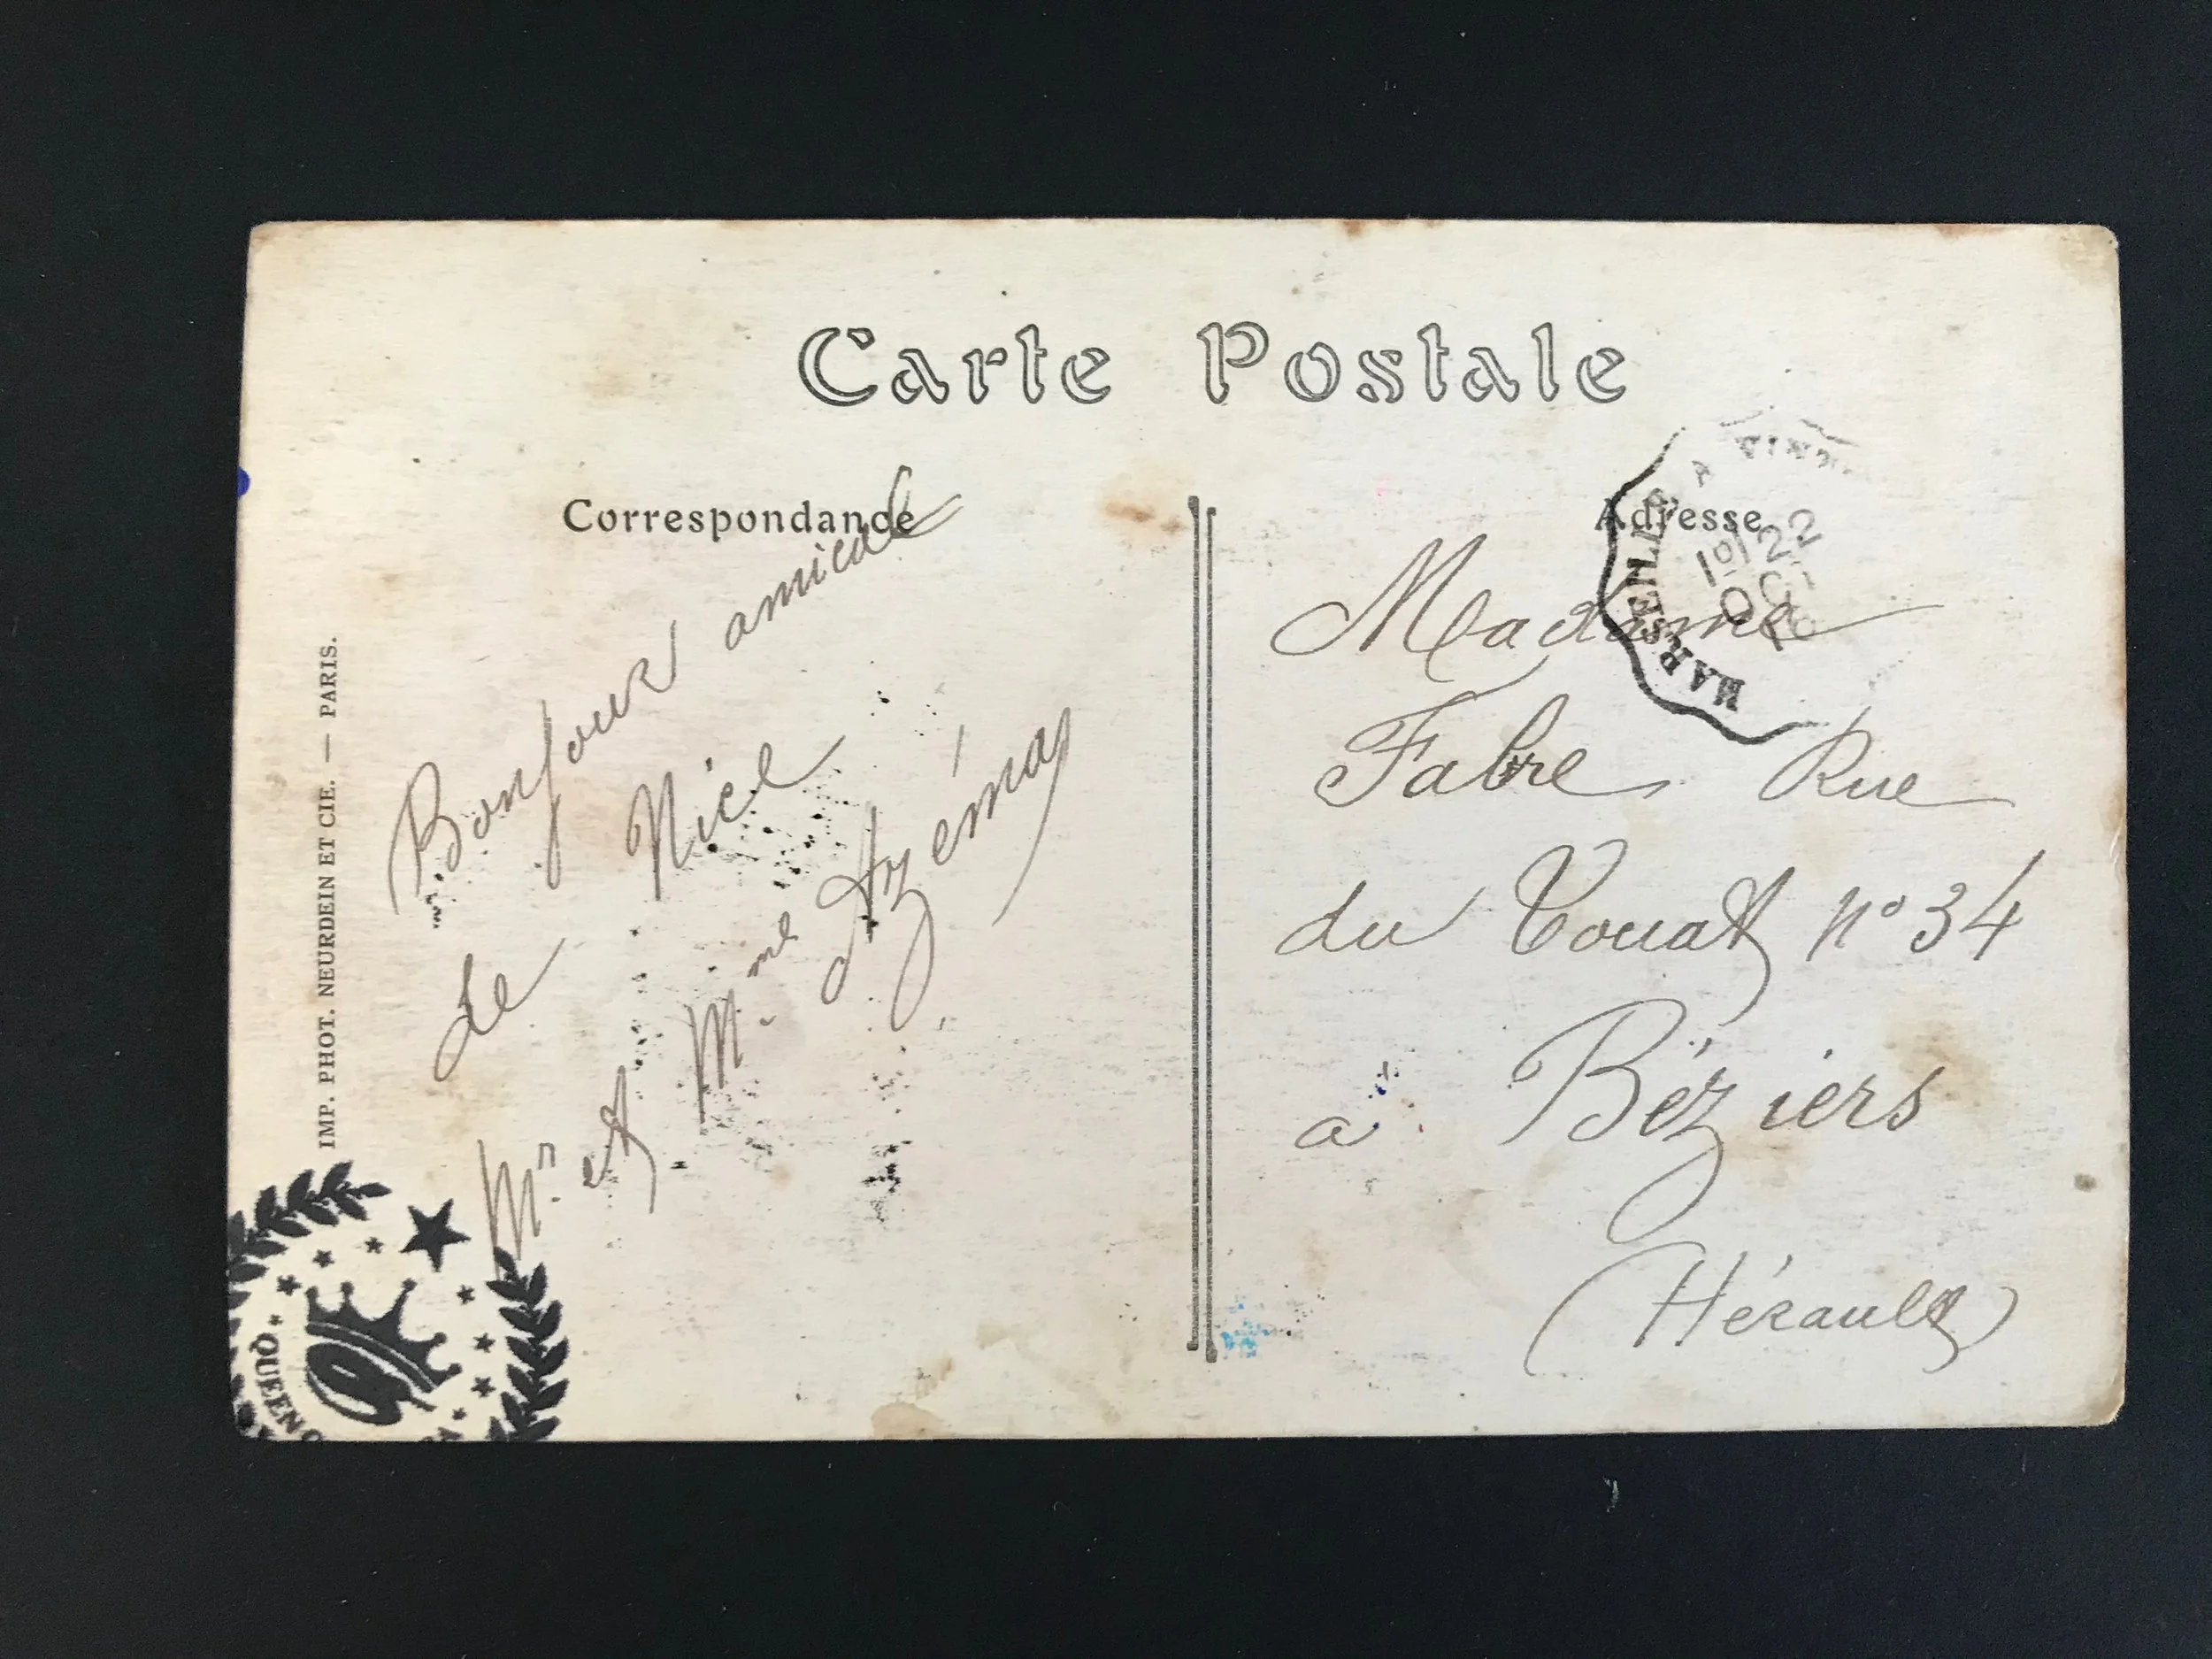 Carte Postale
Correspondance
Bonjour amical
de Nice
Mr et Mme Azéma
IMP. PHOT. NEURDEIN ET CIE. — PARIS.
QUEEN
Adresse
MARSEILLE A VINTI
10/22
OCT
10
Madame
Fabre Rue
du Touat n° 34
a Béziers
(Hérault)